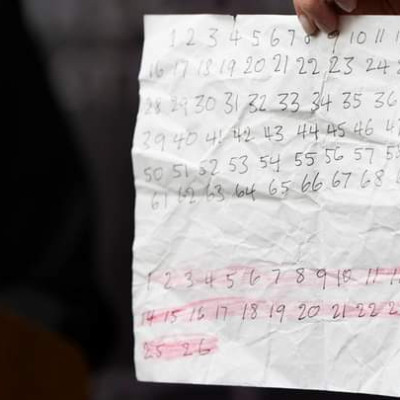 1 2 3 4 5 6 7 8 9 10 11
16 17 18 19 20 21 22 23 24
28 29 30 31 32 33 34 35 36
39 40 41 42 43 44 45 46
50 51 52 53 54 55 56 57
61 62 63 64 65 66 67 68
1 2 3 4 5 6 7 8 9 10 11
14 15 16 17 18 19 20 21 22
25 26